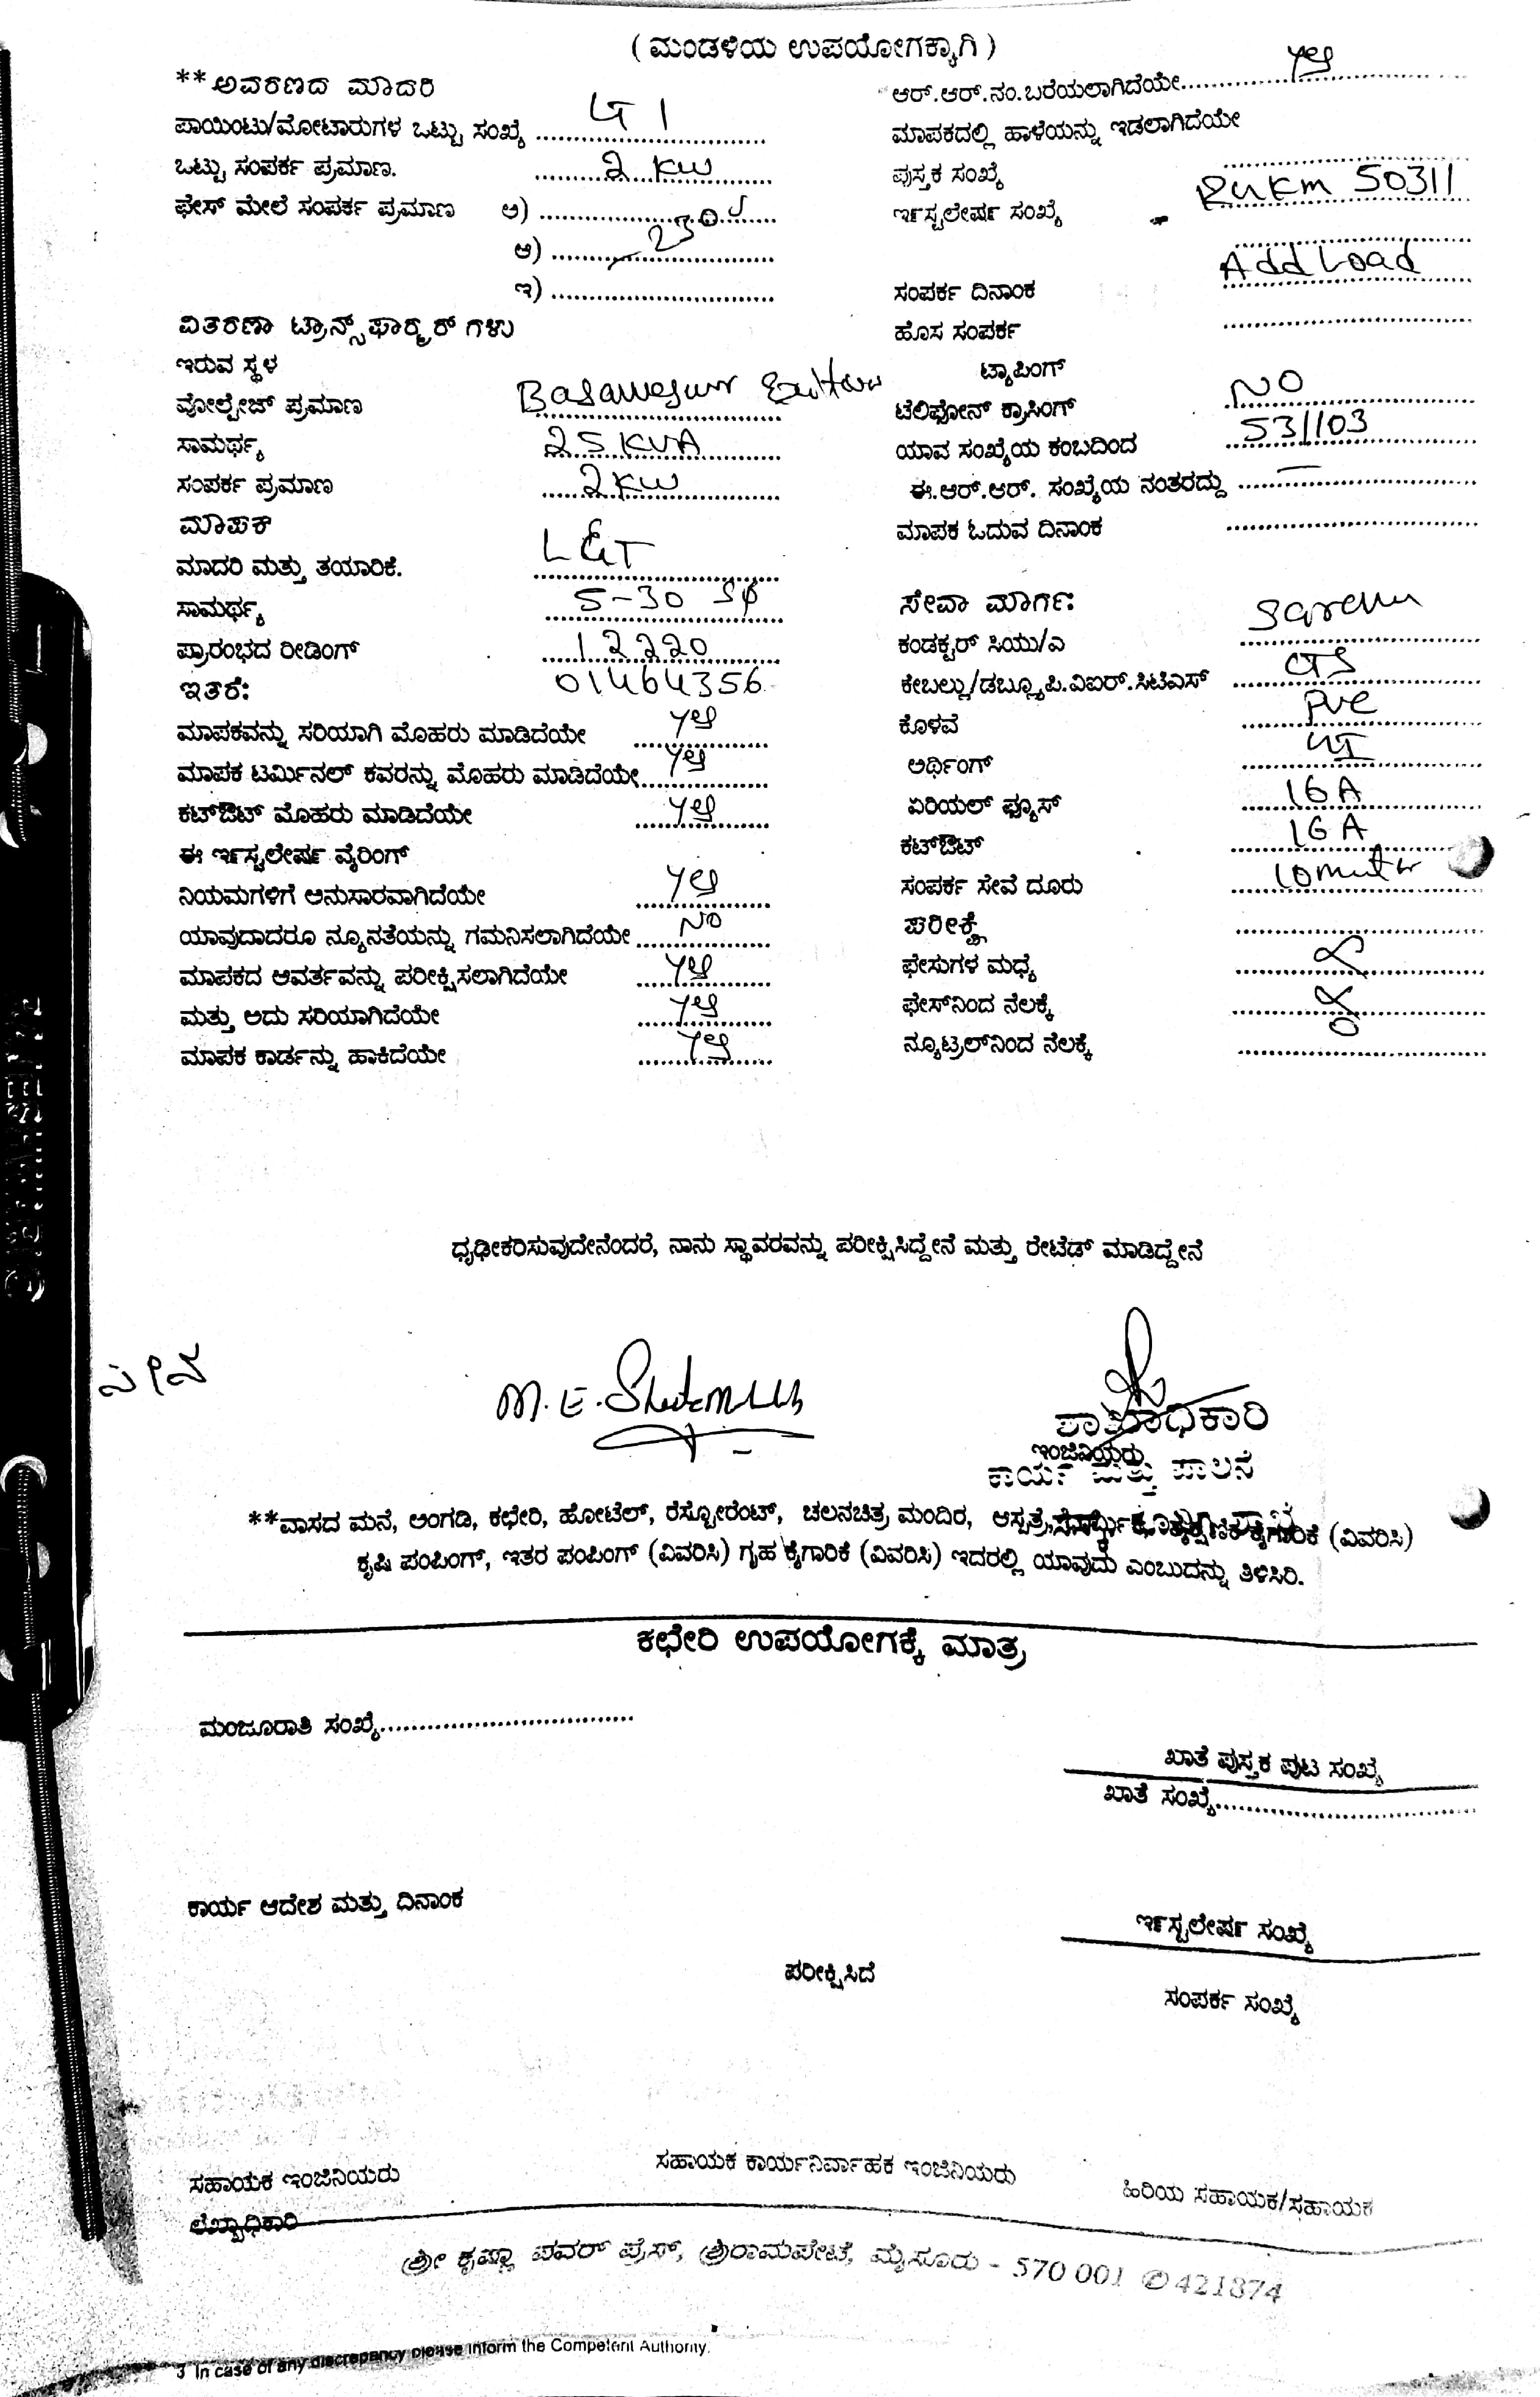 ( ಮಂಡಳಿಯ ಉಪಯೋಗಕ್ಕಾಗಿ )
**ಅವರಣದ ಮಾದರಿ
ಪಾಯಿಂಟು/ಮೋಟಾರುಗಳ ಒಟ್ಟು ಸಂಖ್ಯೆ ........
ಒಟ್ಟು ಸಂಪರ್ಕ ಪ್ರಮಾಣ. 2 KW
ಫೇಸ್ ಮೇಲೆ ಸಂಪರ್ಕ ಪ್ರಮಾಣ ಅ) ........
ಆ) 230
ಇ) ........
ವಿತರಣಾ ಟ್ರಾನ್ಸ್‌ಫಾರ್ಮರ್ ಗಳು
ಇರುವ ಸ್ಥಳ
ವೋಲ್ಟೇಜ್ ಪ್ರಮಾಣ
ಸಾಮರ್ಥ್ಯ 25 KVA
ಸಂಪರ್ಕ ಪ್ರಮಾಣ 2 KW
ಮಾಪಕ
ಮಾದರಿ ಮತ್ತು ತಯಾರಿಕೆ. L&T
ಸಾಮರ್ಥ್ಯ 5-30 Sφ
ಪ್ರಾರಂಭದ ರೀಡಿಂಗ್ 12220
ಇತರೆ: 01464356
ಮಾಪಕವನ್ನು ಸರಿಯಾಗಿ ಮೊಹರು ಮಾಡಿದೆಯೇ yes
ಮಾಪಕ ಟರ್ಮಿನಲ್ ಕವರನ್ನು ಮೊಹರು ಮಾಡಿದೆಯೇ yes
ಕಟ್‌ಔಟ್ ಮೊಹರು ಮಾಡಿದೆಯೇ yes
ಈ ಇನ್‌ಸ್ಟಲೇಷನ್ ವೈರಿಂಗ್
ನಿಯಮಗಳಿಗೆ ಅನುಸಾರವಾಗಿದೆಯೇ yes
ಯಾವುದಾದರೂ ನ್ಯೂನತೆಯನ್ನು ಗಮನಿಸಲಾಗಿದೆಯೇ NO
ಮಾಪಕದ ಆವರ್ತವನ್ನು ಪರೀಕ್ಷಿಸಲಾಗಿದೆಯೇ yes
ಮತ್ತು ಅದು ಸರಿಯಾಗಿದೆಯೇ yes
ಮಾಪಕ ಕಾರ್ಡನ್ನು ಹಾಕಿದೆಯೇ yes
ಆರ್.ಆರ್.ನಂ.ಬರೆಯಲಾಗಿದೆಯೇ yes
ಮಾಪಕದಲ್ಲಿ ಹಾಳೆಯನ್ನು ಇಡಲಾಗಿದೆಯೇ
ಪುಸ್ತಕ ಸಂಖ್ಯೆ
ಇನ್‌ಸ್ಟಲೇಷನ್ ಸಂಖ್ಯೆ 50311
Add Load
ಸಂಪರ್ಕ ದಿನಾಂಕ
ಹೊಸ ಸಂಪರ್ಕ
ಟ್ಯಾಪಿಂಗ್
ಟೆಲಿಫೋನ್ ಕ್ರಾಸಿಂಗ್ NO
ಯಾವ ಸಂಖ್ಯೆಯ ಕಂಬದಿಂದ 531103
ಈ.ಆರ್.ಆರ್. ಸಂಖ್ಯೆಯ ನಂತರದ್ದು —
ಮಾಪಕ ಓದುವ ದಿನಾಂಕ
ಸೇವಾ ಮಾರ್ಗ:
ಕಂಡಕ್ಟರ್ ಸಿಯು/ಎ
ಕೇಬಲ್ಲು/ಡಬ್ಲ್ಯೂಪಿ.ವಿಐಆರ್.ಸಿಟಿಎಸ್ CTS
ಕೊಳವೆ PVC
ಅರ್ಥಿಂಗ್
ಏರಿಯಲ್ ಫ್ಯೂಸ್ 16 A
ಕಟ್‌ಔಟ್ 16 A
ಸಂಪರ್ಕ ಸೇವೆ ದೂರು
ಪರೀಕ್ಷೆ
ಫೇಸುಗಳ ಮಧ್ಯೆ
ಫೇಸ್‌ನಿಂದ ನೆಲಕ್ಕೆ
ನ್ಯೂಟ್ರಲ್‌ನಿಂದ ನೆಲಕ್ಕೆ
ಧೃಢೀಕರಿಸುವುದೇನೆಂದರೆ, ನಾನು ಸ್ಥಾವರವನ್ನು ಪರೀಕ್ಷಿಸಿದ್ದೇನೆ ಮತ್ತು ರೇಟೆಡ್ ಮಾಡಿದ್ದೇನೆ
ಶಾಖಾಧಿಕಾರಿ
ಇಂಜಿನಿಯರು
ಕಾರ್ಯ ಮತ್ತು ಪಾಲನೆ
**ವಾಸದ ಮನೆ, ಅಂಗಡಿ, ಕಛೇರಿ, ಹೋಟೆಲ್, ರೆಸ್ಟೋರೆಂಟ್, ಚಲನಚಿತ್ರ ಮಂದಿರ, ಆಸ್ಪತ್ರೆ, ಕೈಗಾರಿಕೆ (ವಿವರಿಸಿ)
ಕೃಷಿ ಪಂಪಿಂಗ್, ಇತರ ಪಂಪಿಂಗ್ (ವಿವರಿಸಿ) ಗೃಹ ಕೈಗಾರಿಕೆ (ವಿವರಿಸಿ) ಇದರಲ್ಲಿ ಯಾವುದು ಎಂಬುದನ್ನು ತಿಳಿಸಿರಿ.
ಕಛೇರಿ ಉಪಯೋಗಕ್ಕೆ ಮಾತ್ರ
ಮಂಜೂರಾತಿ ಸಂಖ್ಯೆ........
ಖಾತೆ ಪುಸ್ತಕ ಪುಟ ಸಂಖ್ಯೆ
ಖಾತೆ ಸಂಖ್ಯೆ........
ಕಾರ್ಯ ಆದೇಶ ಮತ್ತು ದಿನಾಂಕ
ಇನ್‌ಸ್ಟಲೇಷನ್ ಸಂಖ್ಯೆ
ಪರೀಕ್ಷಿಸಿದೆ
ಸಂಪರ್ಕ ಸಂಖ್ಯೆ
ಸಹಾಯಕ ಇಂಜಿನಿಯರು ಸಹಾಯಕ ಕಾರ್ಯನಿರ್ವಾಹಕ ಇಂಜಿನಿಯರು ಹಿರಿಯ ಸಹಾಯಕ/ಸಹಾಯಕ
ಲೆಖ್ಖಾಧಿಕಾರಿ
ಶ್ರೀ ಕೃಷ್ಣಾ ಪವರ್ ಪ್ರೆಸ್, ಶ್ರೀರಾಮಪೇಟೆ, ಮೈಸೂರು - 570 001 ✆ 421874
3 In case of any discrepancy please inform the Competent Authority.